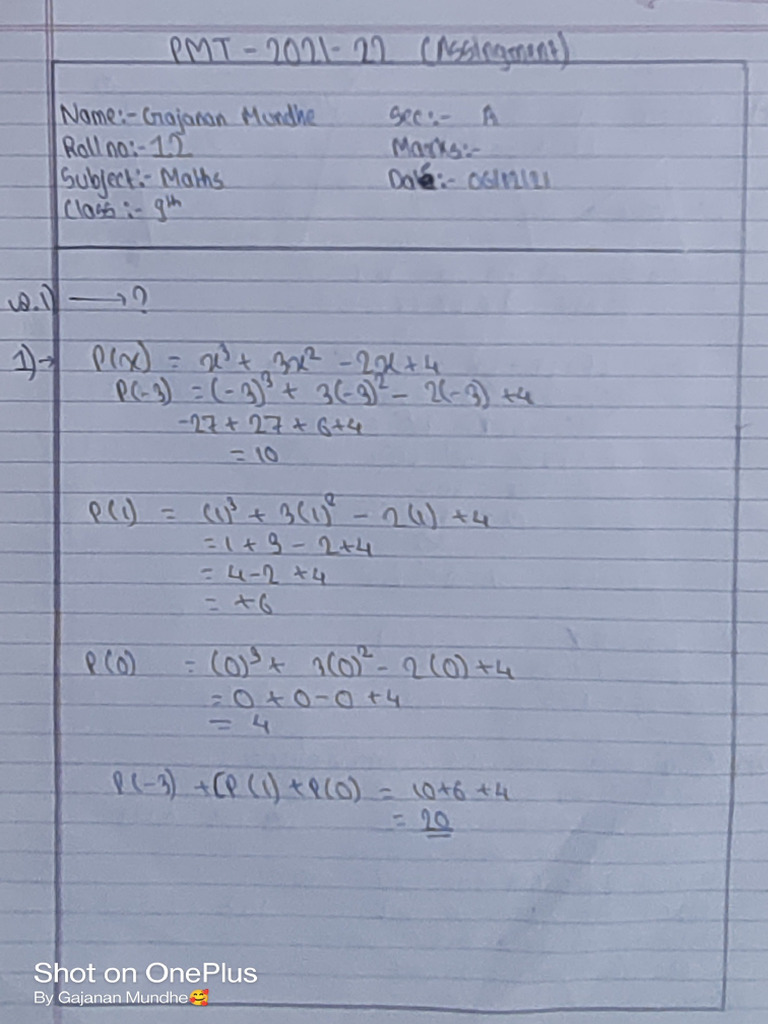 PMT - 2021-22 (Assingment)
Name:- Gajanan Mundhe Sec:- A
Roll no:- 12 Marks:-
Subject:- Maths Date:- 06/12/21
Class :- 9th
Q.1) ⟶ ?
1)→ P(x) = x³ + 3x² - 2x + 4
P(-3) = (-3)³ + 3(-3)² - 2(-3) + 4
-27 + 27 + 6 + 4
= 10
P(1) = (1)³ + 3(1)² - 2(1) + 4
= 1 + 3 - 2 + 4
= 4 - 2 + 4
= +6
P(0) = (0)³ + 3(0)² - 2(0) + 4
= 0 + 0 - 0 + 4
= 4
P(-3) + [P(1) + P(0) = 10 + 6 + 4
= 20
Shot on OnePlus
By Gajanan Mundhe🥰